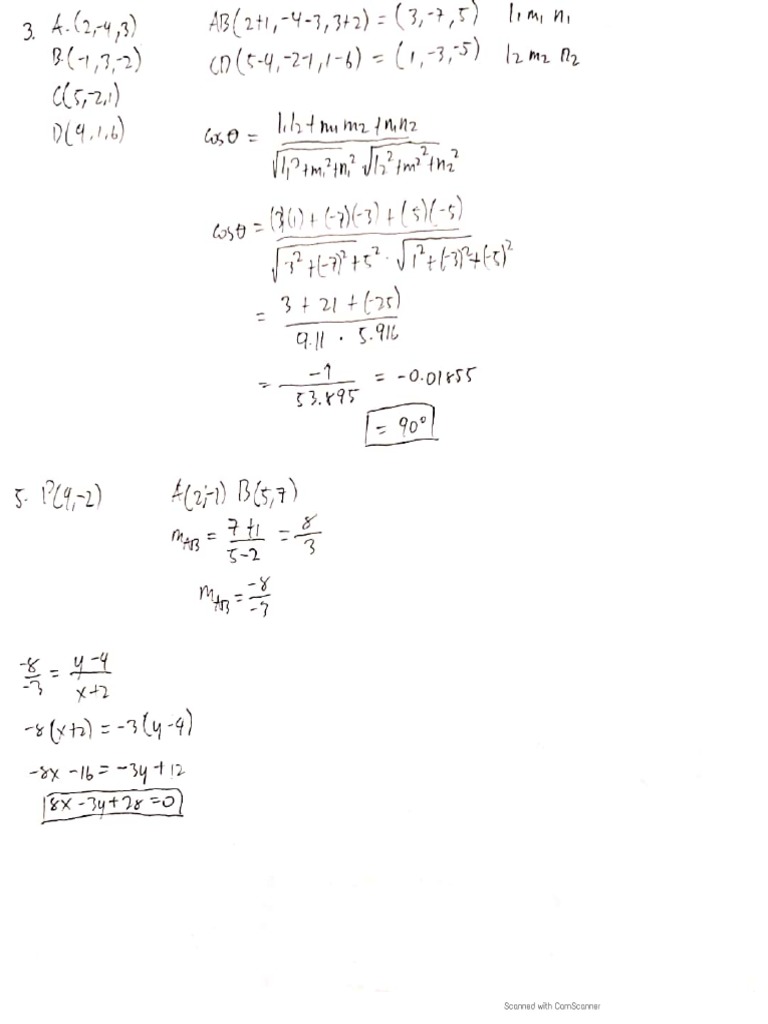 3. A.(2,-4,3) AB(2+1,-4-3,3+2) = (3,-7,5) l₁ m₁ n₁
B.(-1,3,-2) CD(5-4,-2-1,1-6) = (1,-3,-5) l₂ m₂ n₂
C(5,-2,1)
D(4,1,6) cosθ = l₁l₂+m₁m₂+n₁n₂ / √l₁²+m₁²+n₁² √l₂²+m²+n₂²
cosθ = (3)(1) + (-7)(-3) + (5)(-5) / √3²+(-7)²+5² · √1²+(-3)²+(-5)²
= 3 + 21 + (-25) / 9.11 · 5.916
= -1 / 53.895 = -0.01855
= 90°
5. P(4,-2) A(2,-1) B(5,7)
m_AB = 7+1 / 5-2 = 8/3
m_AB = -8/-3
-8/-3 = y-4 / x+2
-8(x+2) = -3(y-4)
-8x -16 = -3y + 12
8x - 3y + 28 = 0
Scanned with CamScanner